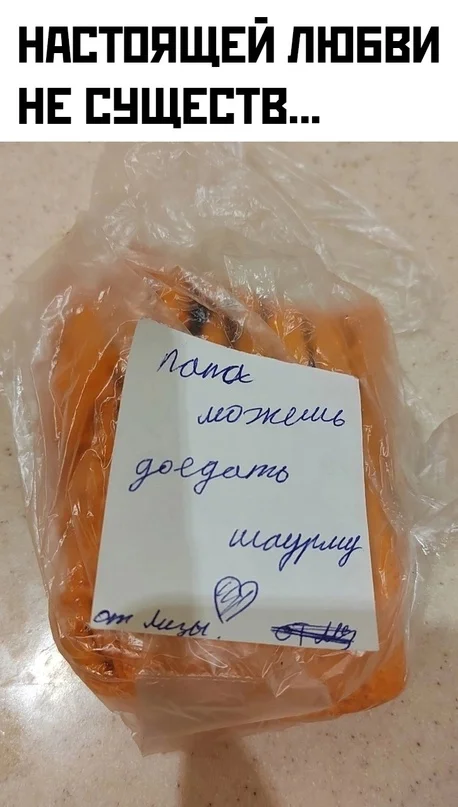 НАСТОЯЩЕЙ ЛЮБВИ
НЕ СУЩЕСТВ...
Папа
можешь
доедать
шаурму
от Лизы.